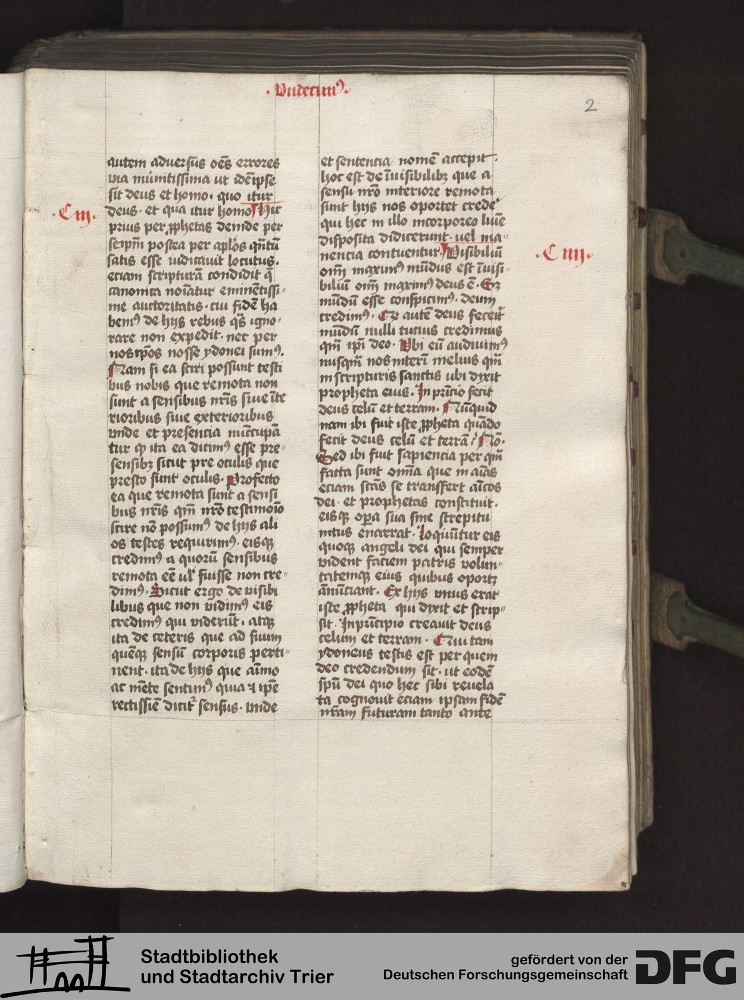 · Vndecimꝰ ·
2
autem adversus oēs errores
via mūnitissima ut idē ipse
sit deus et homo · quo itur
· C iij · deus · et qua itur homo Hic
prius per ꝓphetas deinde per
seip̄m postea per apl̄os qn̄tū
satis esse iudicavit locutus ·
eciam scripturā condidit q̄
canonica noīatur eminētissi-
me auctoritatis · cui fidē ha
bemꝰ de hijs rebus qs̄ igno-
rare non expedit · nec per
nosip̄os nosse ydonei sumꝰ.
Nam si ea sciri possunt testi
bus nobis que remota non
sunt a sensibus nr̄is siue īte
rioribus siue exterioribus
vnde et presencia nūccupā
tur ꝙ ita ea dicimꝰ esse pre
sensibꝫ sicut pre oculis que
presto sunt oculis · Profecto
ea que remota sunt a sensi
bus nr̄is qm̄ nr̄o testimoīo
scire nō possumꝰ de hijs ali
os testes requirimꝰ · eisqꝫ
credimꝰ a quorū sensibus
remota eē ul̄ fuisse non cre-
dimꝰ · Sicut ergo de visibi
libus que non vidimꝰ eis
credimꝰ qui viderūt · atqꝫ
ita de ceteris que ad suum
quēqꝫ sensū corporis perti-
nent · ita de hijs que aīmo
ac mēte sentimꝰ quia ⁊ ip̄e
rectissīe dicit̄ sensus · vnde
et sentencia nomē accepit ·
hoc est de īuisibilibꝫ que a
sensu nr̄o interiore remota
sunt hijs nos oportet crede᷑
qui hec in illo incorporeo lūīe
disposita didicerunt · vel ma-
nencia contuentur Visibiliū
· C iiij ·
oīm maximꝰ mūdus est īuisi-
biliū oīm maximꝰ deus ē · Sꝫ
mūdū esse conspicimꝰ · deum
credimꝰ · Qꝫ autē deus fecerit
mūdū nulli tucius credimus
qm̄ ip̄i deo · Vbi eū audiuimꝰ
nusqm̄ nos interī melius qm̄
in scripturis sanctis ubi dixit
propheta eius · In prīcio fecit
deus celū et terram · Nūquid
nam ibi fuit iste ꝓpheta quādo
fecit deus celū et terrā? Nō ·
Sed ibi fuit sapiencia per qm̄
facta sunt om̄ia que in aīas
eciam scās se transfert aīcos
dei · et prophetas constituit ·
eisqꝫ oꝑa sua sine strepitu
intus enarrat · loquūtur eis
quoqꝫ angeli dei qui semper
vident faciem patris volun-
tatemqꝫ eius quibus oportꝫ
anūciant · Ex hijs vnus erat
iste ꝓpheta qui dixit et scrip-
sit · In prīncipio creauit deus
celum et terram · Qui tam
ydoneus testis est per quem
deo credendum sit · ut eodē
spū dei quo hec sibi reuela
ta cognouit eciam ipsam fidē
nr̄am futuram tanto ante
Stadtbibliothek
und Stadtarchiv Trier
gefördert von der
Deutschen Forschungsgemeinschaft
DFG